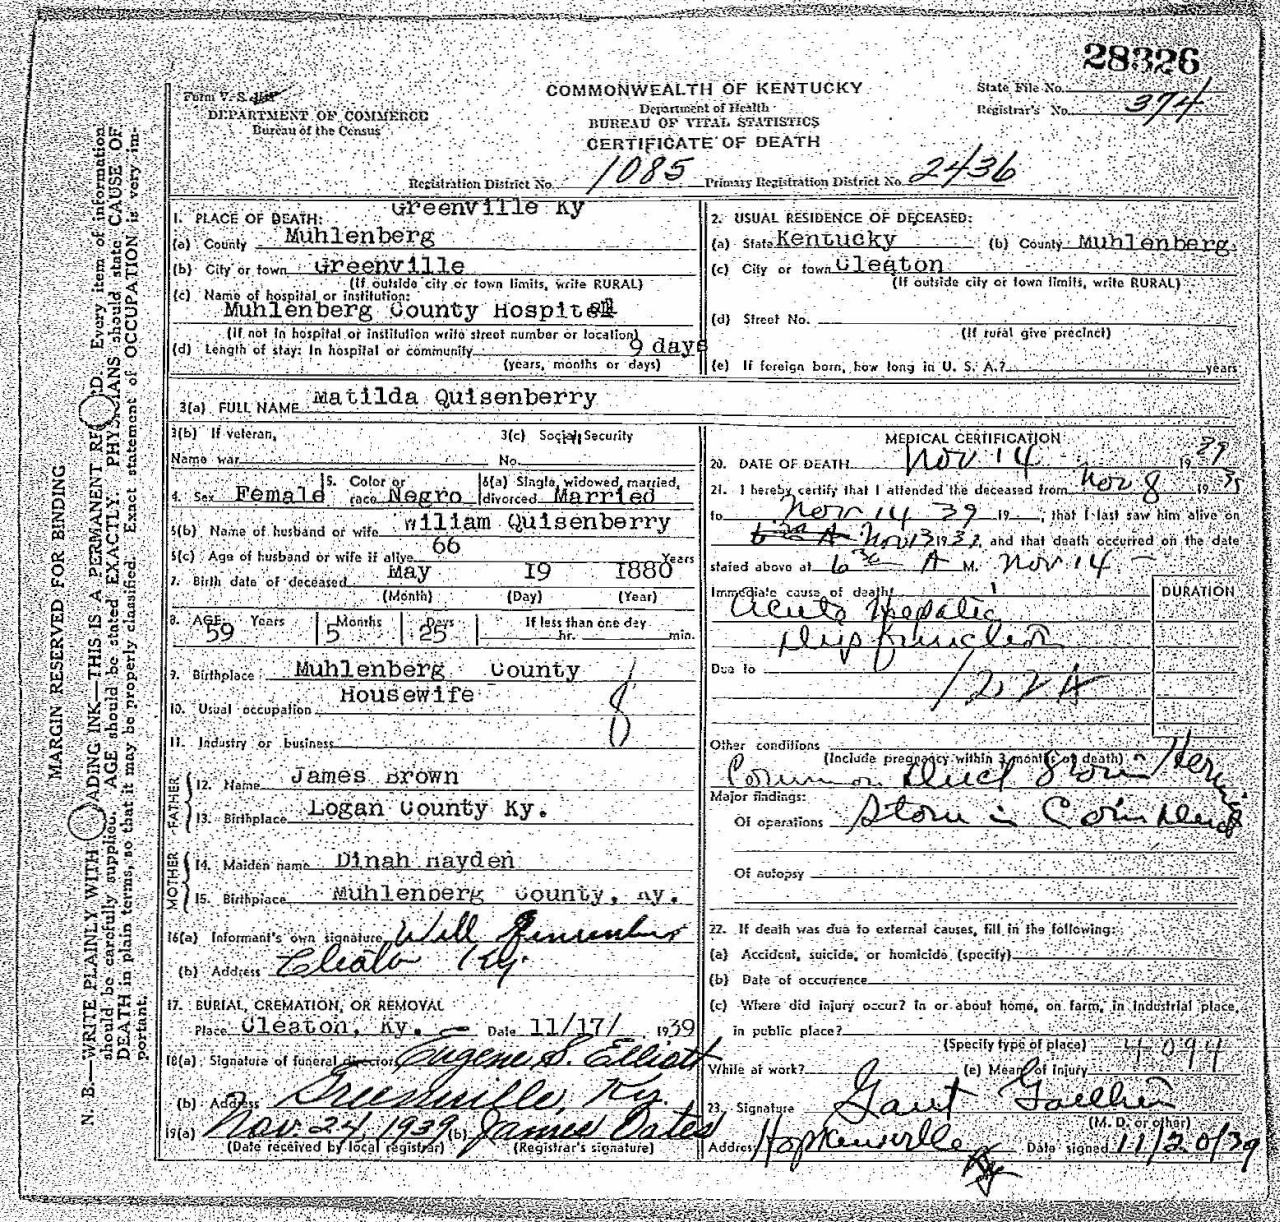 28326
Form V. S.
DEPARTMENT OF COMMERCE
Bureau of the Census
COMMONWEALTH OF KENTUCKY
Department of Health
BUREAU OF VITAL STATISTICS
CERTIFICATE OF DEATH
State File No.
Registrar's No. 374
Registration District No. 1085 Primary Registration District No. 2436
MARGIN RESERVED FOR BINDING
N. B.—WRITE PLAINLY WITH ADING INK—THIS IS A PERMANENT RE RD. Every item of information
should be carefully supplied. AGE should be stated EXACTLY. PHYSICIANS should state CAUSE OF
DEATH in plain terms, so that it may be properly classified. Exact statement of OCCUPATION is very im-
portant.
Greenville Ky
1. PLACE OF DEATH:
(a) County Muhlenberg
(b) City or town Greenville
(If outside city or town limits, write RURAL)
(c) Name of hospital or institution:
Muhlenberg County Hospital
(If not in hospital or institution write street number or location)
(d) Length of stay: In hospital or community 9 days
(years, months or days)
2. USUAL RESIDENCE OF DECEASED:
(a) State Kentucky (b) County Muhlenberg.
(c) City or town Cleaton
(If outside city or town limits, write RURAL)
(d) Street No.
(If rural give precinct)
(e) If foreign born, how long in U. S. A.? years
3(a) FULL NAME Matilda Quisenberry
3(b) If veteran,
Name war
3(c) Social Security
No.
4. Sex Female 5. Color or race Negro 6(a) Single, widowed, married, divorced Married
6(b) Name of husband or wife William Quisenberry
6(c) Age of husband or wife if alive 66 Years
7. Birth date of deceased May 19 1880
(Month) (Day) (Year)
8. AGE: Years 59 Months 5 Days 25 If less than one day
hr. min.
9. Birthplace Muhlenberg County
10. Usual occupation Housewife
8
11. Industry or business
FATHER
12. Name James Brown
13. Birthplace Logan County Ky.
MOTHER
14. Maiden name Dinah Hayden
15. Birthplace Muhlenberg County, Ky.
16(a) Informant's own signature Will
(b) Address Cleaton Ky.
17. BURIAL, CREMATION, OR REMOVAL
Place Cleaton, Ky. — Date 11/17/ 1939
18(a) Signature of funeral director Eugene S. Elliott
(b) Address Greenville, Ky.
19(a) Nov. 24, 1939 (b) James Oates
(Date received by local registrar) (Registrar's signature)
MEDICAL CERTIFICATION
20. DATE OF DEATH Nov 14 19 39
21. I hereby certify that I attended the deceased from Nov 8 19 39
to Nov 14 39 19 , that I last saw him alive on
Nov 13 1939, and that death occurred on the date
stated above at 6 30 A M. Nov 14 —
Immediate cause of death
Acute Hepatic
Dysfunction
DURATION
Due to
122A
Other conditions
(Include pregnancy within 3 months of death)
Common Duct Stone
Major findings:
Of operations Stone in Com Duct
Of autopsy
22. If death was due to external causes, fill in the following:
(a) Accident, suicide, or homicide (specify)
(b) Date of occurrence
(c) Where did injury occur? In or about home, on farm, in industrial place,
in public place?
(Specify type of place) 4094
While at work? (e) Means of injury
23. Signature Gant Gaither
(M. D. or other)
Address Hopkinsville Ky Date signed 11/20/39